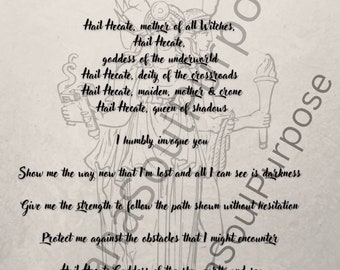 Hail Hecate, mother of all Witches,
Hail Hecate,
goddess of the underworld
Hail Hecate, deity of the crossroads
Hail Hecate, maiden, mother & crone
Hail Hecate, queen of shadows
I humbly invogue you
Show me the way now that I'm lost and all I can see is darkness
Give me the strength to follow the path shown without hesitation
Protect me against the obstacles that I might encounter
Hail Hecate Goddess of the
SoulPurpose
SoulPurpose